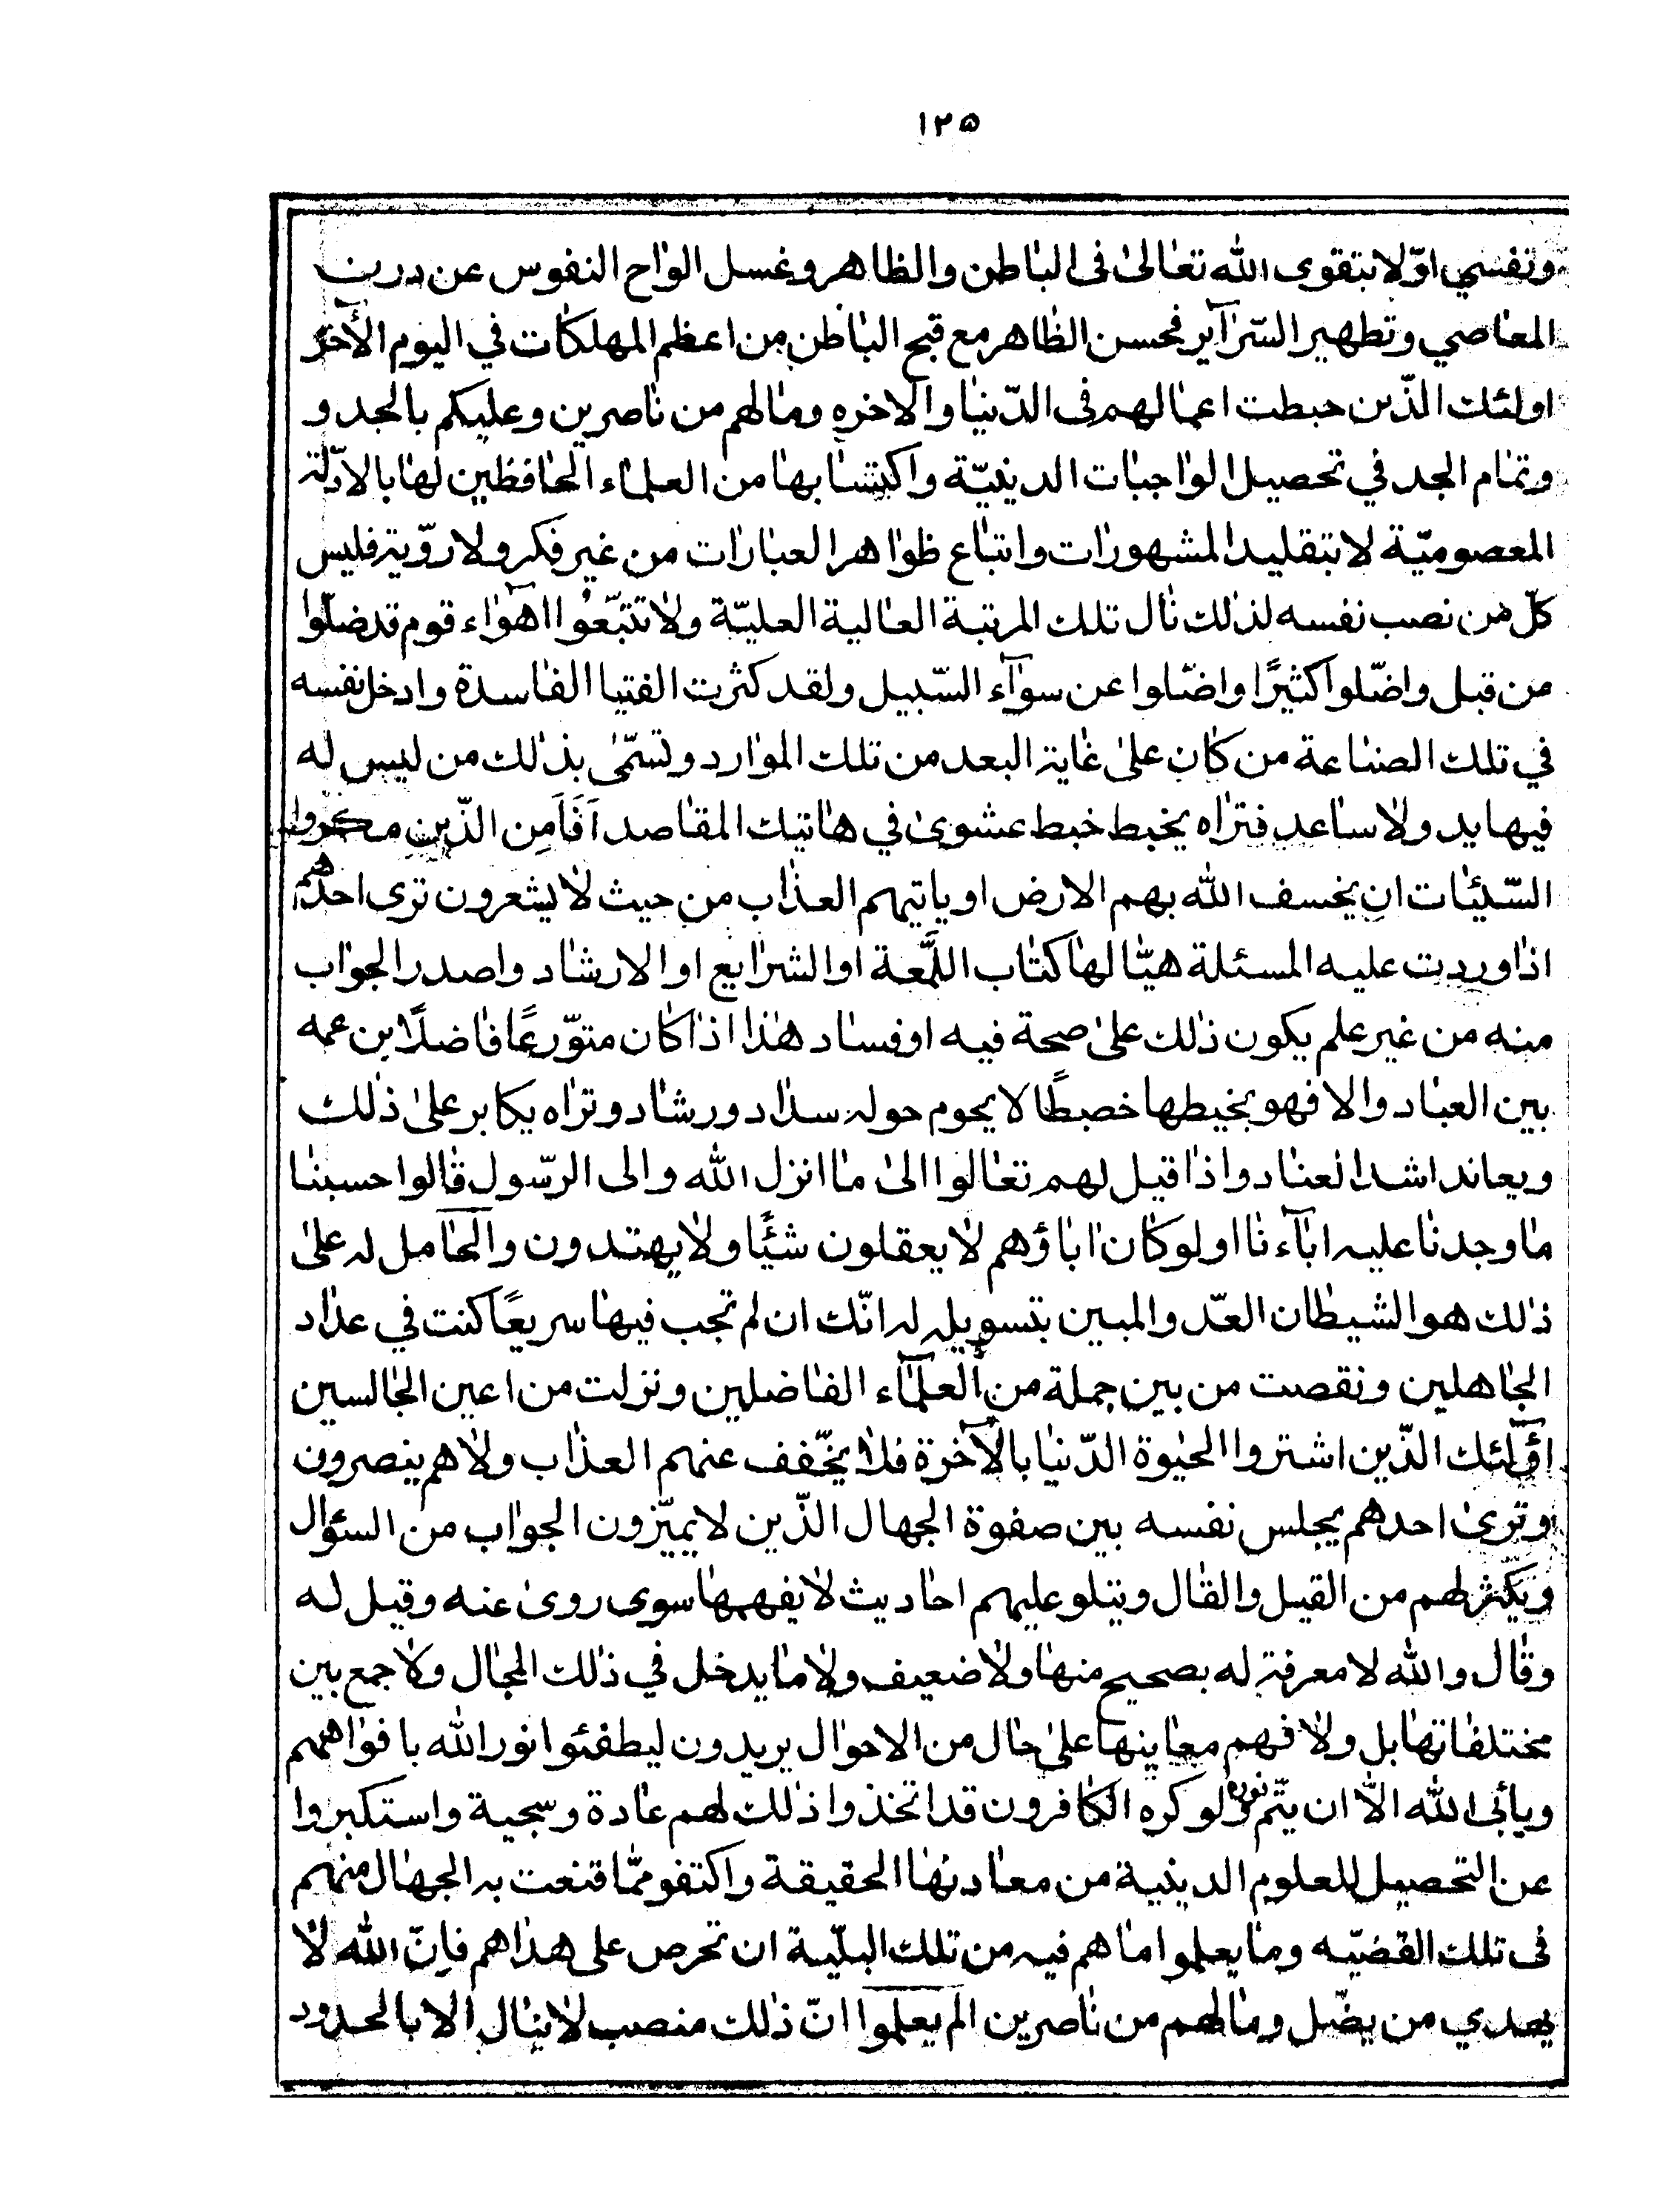 ١٢٥
ونفسي اوّلا بتقوى الله تعالى فى الباطن والظاهر وغسل الواح النفوس عن درن
المعاصي وتطهير السّرآير فحسن الظاهر مع قبح الباطن من اعظم المهلكات في اليوم الآخر
اولئك الذّين حبطت اعمالهم فى الدّنيا والاخره ومالهم من ناصرين وعليكم بالجد و
وتمام الجد في تحصيل الواجبات الدينيّة واكتسابها من العلماء الحافظين لها بالادّلة
المعصوميّة لا بتقليد المشهورات واتباع ظواهر العبارات من غير فكر ولا رويّة فليس
كلّ من نصب نفسه لذلك نال تلك المرتبة العالية العليّة ولا تتبّعوا اهوآء قوم قد ضلّوا
من قبل واضّلوا كثيرًا واضّلوا عن سوآء السّبيل ولقد كثرت الفتيا الفاسدة وادخل نفسه
في تلك الصناعة من كان على غاية البعد من تلك الموارد وتسمّى بذلك من ليس له
فيها يد ولا ساعد فتراه يخبط خبط عشوى في هاتيك المقاصد اَفَاَمِن الذّين مكروا
السّيئات ان يخسف الله بهم الارض او ياتيهم العذاب من حيث لا يشعرون ترى احدهم
اذا وردت عليه المسئلة هيّا لها كتاب اللّمعة او الشرايع او الارشاد واصدر الجواب
منه من غير علم يكون ذلك على صحة فيه او فساد هذا اذا كان متوّرعًا فاضلًا بن عمه
بين العباد والا فهو يخيطها خصبطًا لا يحوم حوله سداد ورشاد وتراه يكابر على ذلك
ويعاند اشد العناد واذا قيل لهم تعالوا الى ما انزل الله والى الرّسول قالوا حسبنا
ما وجدنا عليه ابآءنا اولو كان اباؤهم لا يعقلون شيًئا ولا يهتدون والحامل له على
ذلك هو الشيطان العّدو المبين بتسويله له انّك ان لم تجب فيها سريعًا كنت في عداد
الجاهلين ونقصت من بين جملة من العلمآء الفاضلين ونزلت من اعين الجالسين
اوّلئك الذّين اشتروا الحيوة الدّنيا بالآخرة فلا يخّفف عنهم العذاب ولا هم ينصرون
وترى احدهم يجلس نفسه بين صفوة الجهال الذّين لا يميّزون الجواب من السئوال
ويكّثر لهم من القيل والقال ويتلو عليهم احاديث لا يفهمها سوى روى عنه وقيل له
وقال والله لا معرفة له بصحيح منها ولا ضعيف ولا ما يدخل في ذلك المجال ولا جمع بين
مختلفاتها بل ولا فهم معاينها على حال من الاحوال يريدون ليطفئوا نور الله بافواههم
ويأبى الله الّا ان يتّم نوره ولو كره الكافرون قد اتخذوا ذلك لهم عادة وسجية واستكبروا
عن التحصيل للعلوم الدينية من معادنها الحقيقة واكتفو ممّا قنعت به الجهال منهم
فى تلك القضيّه وما يعلموا ما هم فيه من تلك البلّية ان تحرص على هداهم فاِنّ الله لا
يهدي من يضّل ومالهم من ناصرين الم يعلموا انّ ذلك منصب لا ينال الا بالحدود